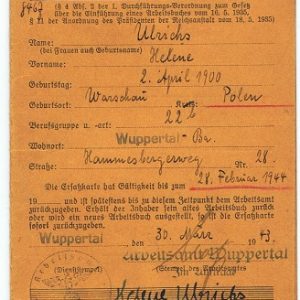 8467
(§ 4 Abs. 2 der 1. Durchführungs-Verordnung zum Gesetz
über die Einführung eines Arbeitsbuches vom 16. 5. 1935,
§ 11 der Anordnung des Präsidenten der Reichsanstalt vom 18. 5. 1935)
Ulrichs
Name:
(bei Frauen auch Geburtsname)
Helene
Geburtstag: 2. April 1900
Geburtsort: Warschau Polen
Berufsgruppe u. -art: 22 b
Wohnort: Wuppertal-Ba.
Straße: Hammesbergerweg Nr. 28.
Die Ersatzkarte hat Gültigkeit bis zum 28. Februar 1944
19 und ist spätestens bis zu diesem Zeitpunkt dem Arbeitsamt
zurückzugeben. Erhält der Inhaber sein altes Arbeitsbuch zurück
oder wird ein neues Arbeitsbuch ausgestellt, ist die Ersatzkarte
sofort zurückzugeben.
Wuppertal 30. März 1943.
Arbeitsamt Wuppertal
(Dienststempel)
Helene Ulrichs